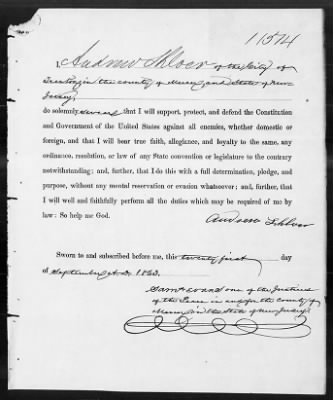 11514
I, Andrew Shlover of the City of
Trenton in the county of Mercer and State of New
Jersey,
do solemnly swear that I will support, protect, and defend the Constitution
and Government of the United States against all enemies, whether domestic
or foreign, and that I will bear true faith, allegiance, and loyalty to the same, any
ordinance, resolution, or law of any State convention or legislature to the contrary
notwithstanding; and, further, that I do this with a full determination, pledge, and
purpose, without any mental reservation or evasion whatsoever; and, further, that
I will well and faithfully perform all the duties which may be required of me by
law: So help me God.
Andrew Shlover
Sworn to and subscribed before me, this twenty first day
of September A.D. 1863.
Saml Evans one of the Justices
of the Peace in and for the County of
Mercer in the State of New Jersey